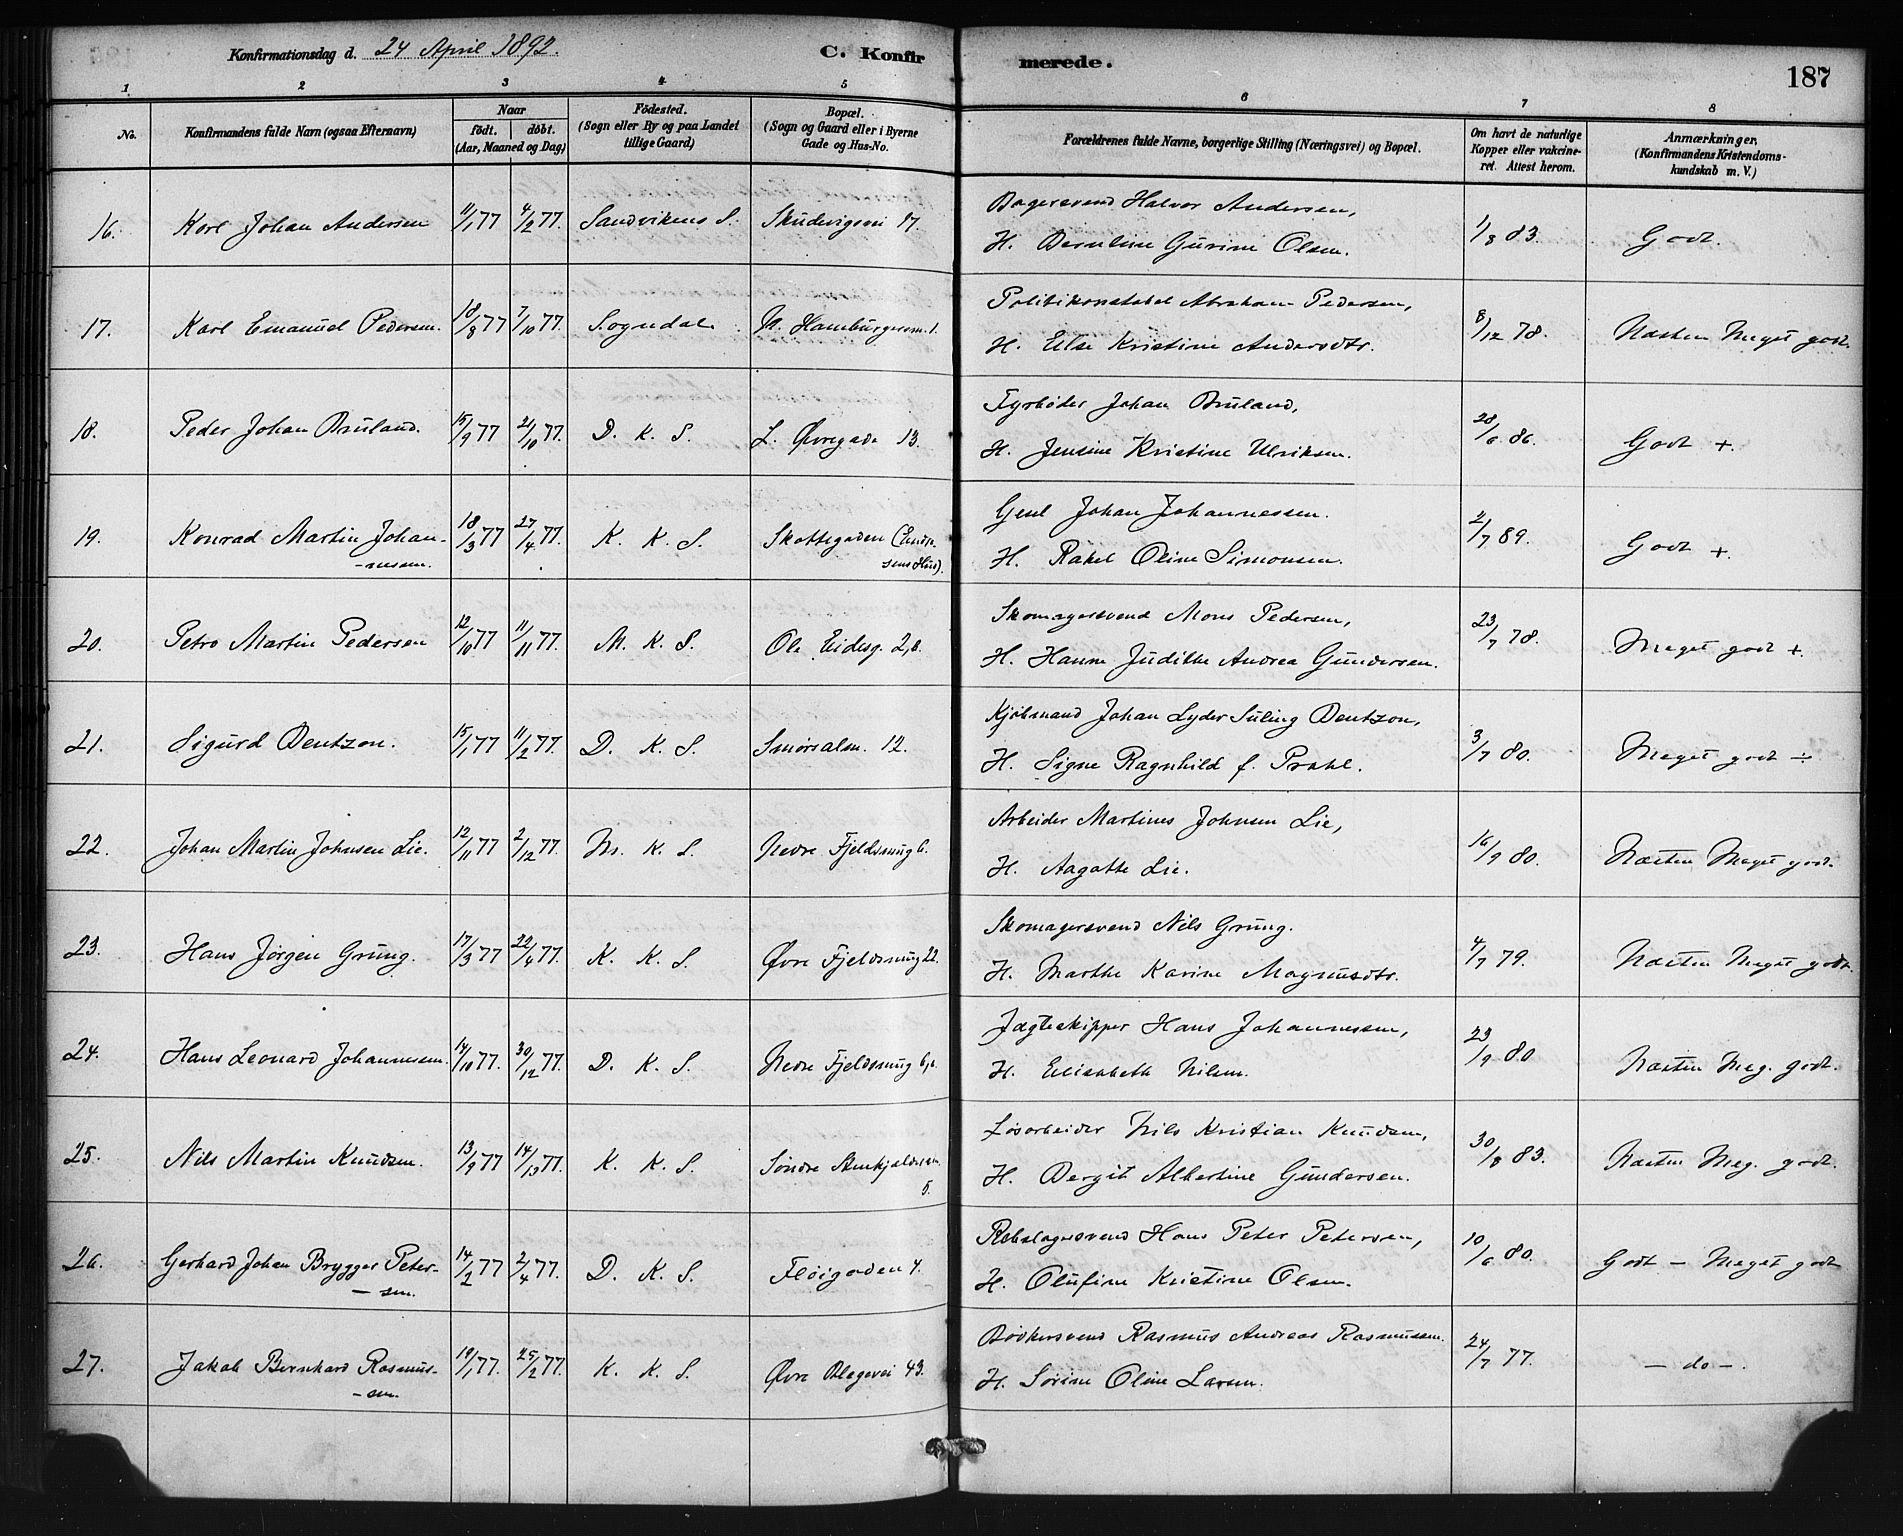 Konfirmationsdag d. 24 April 1892.
C. Konfirmerede.
187
1 2 3 4 5 6 7 8
No.
Konfirmandens fulde Navn (ogsaa Efternavn)
Naar
födt. döbt.
(Aar, Maaned og Dag)
Födested.
(Sogn eller By og paa Landet
tillige Gaard)
Bopæl.
(Sogn og Gaard eller i Byerne
Gade og Hus-No.
Forældrenes fulde Navne, borgerlige Stilling (Næringsvei) og Bopæl.
Om havt de naturlige
Kopper eller vakcine-
ret. Attest herom.
Anmærkninger.
(Konfirmandens Kristendoms-
kundskab m. V.)
16. Karl Johan Andersen 11/1 77 4/2 77. Sandvikens S. Skudevigsvei 17. Bagersvend Halvor Andersen, 1/8 83. Godt.
H. Berntine Gurine Olsen.
17. Karl Emanuel Pedersen. 18/8 77 7/10 77. Sogndal. N. Hamburgersm. 1. Politikonstabel Abraham Pedersen, 8/12 78. Næsten Meget godt.
H. Else Kristine Andersdtr.
18. Peder Johan Bruland. 15/9 77 21/10 77. D. K. S. L. Øvregade 13. Fyrbøder Johan Bruland, 28/6 86. Godt +.
H. Jensine Kristine Ulriksen.
19. Konrad Martin Johan- 18/3 77 27/4 77. K. K. S. Skottegaden
-nesen. sens Hus). Johan Johannessen. 2/7 89. Godt +
H. Rakel Oline Simonsen.
20. Petro Martin Pedersen 12/10 77 11/11 77. M. K. S. Ole Eidesg. 2,b. Skomagersvend Mons Pedersen, 23/7 78. Meget godt +.
H. Hanne Judithe Andrea Gundersen.
21. Sigurd Bentzon. 15/1 77 11/2 77. D. K. S. Smörsalm. 12. Kjöbmand Johan Lyder Suling Bentzon, 3/7 80. Meget godt ÷
H. Signe Ragnhild f. Prahl.
22. Johan Martin Johnsen Lie. 12/11 77 2/12 77. M. K. S. Nedre Fjeldsmug 6. Arbeider Martines Johnsen Lie, 16/9 80. Næsten Meget godt.
H. Aagatte Lie.
23. Hans Jørgen Grung. 17/3 77 22/4 77. K. K. S. Øvre Fjeldsmug 22. Skomagersvend Nils Grung. 4/7 79. Næsten Meget godt.
H. Marthe Karine Magnusdtr.
24. Hans Leonard Johannessen. 14/10 77. 30/12 77. D. K. S. Nedre Fjeldsmug 6,b. Jægteskipper Hans Johannessen, 23/9 80. Næsten Meg. godt.
H. Elisabeth Nilsen.
25. Nils Martin Knudsen. 13/9 77 14/ 77. K. K. S. Søndre
5. Løsarbeider Nils Kristian Knudsen, 30/8 83. Næsten Meg. godt.
H. Bergit Albertine Gundersen.
26. Gerhard Johan Brygger Peter- 14/2 77 2/4 77. D. K. S. Fløigaden 4.
-sen. Rebslagersvend Hans Peter Petersen, 10/6 80. Godt - Meget godt
H. Olufine Kristine Olsen.
27. Jakob Bernhard Rasmus- 19/1 77. 25/2 77. K. K. S. Øvre Blegevei 43.
-sen. Bødkersvend Rasmus Andreas Rasmussen. 24/7 77. - do -.
H. Sørine Oline Larsen.